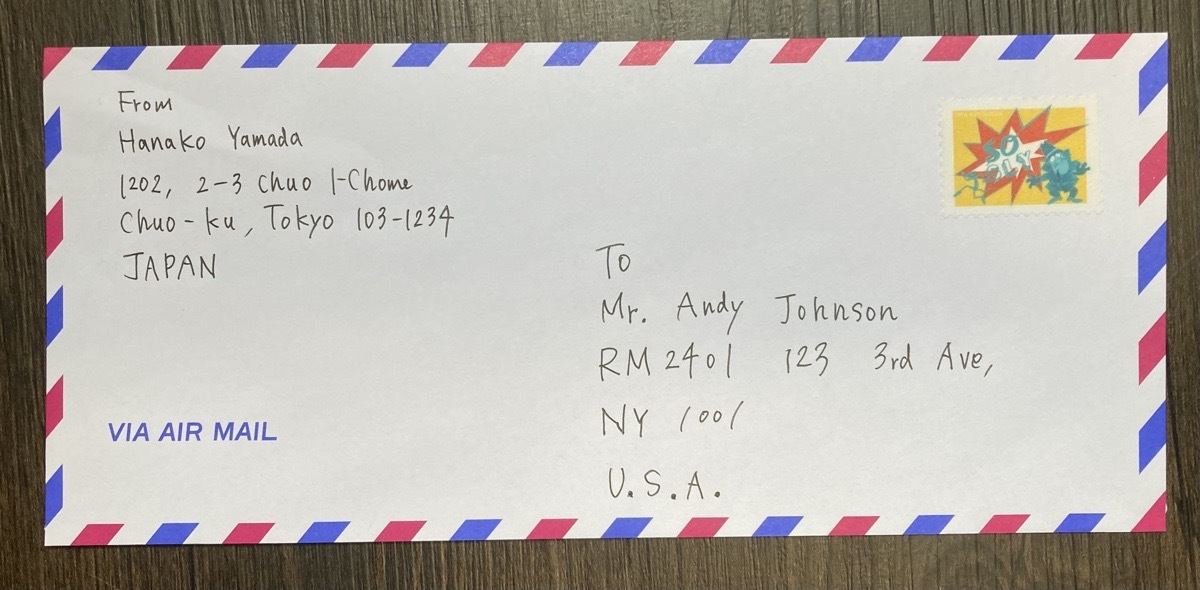 From
Hanako Yamada
1202, 2-3 Chuo 1-Chome
Chuo-ku, Tokyo 103-1234
JAPAN
VIA AIR MAIL
SO
To
Mr. Andy Johnson
RM 2401 123 3rd Ave,
NY 1001
U.S.A.